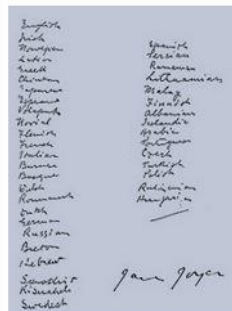 English
Irish
Norwegian
Latin
Greek
Chinese
Japanese
Esperanto
Volapuck
Novial
Flemish
French
Italian
Burmese
Basque
Welsh
Roumansch
Dutch
German
Russian
Breton
Hebrew
Sanskrit
Kisuaheli
Swedish
Spanish
Persian
Rumanian
Lithuanian
Malay
Finnish
Albanian
Icelandic
Arabic
Portuguese
Czech
Turkish
Polish
Ruthenian
Hungarian
James Joyce